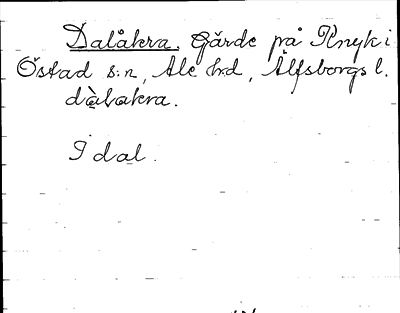 Dalåkra. Gärde på Knyk i
Östad s:n, Ale hd, Älfsborgs l.
dàlakra.
I dal.